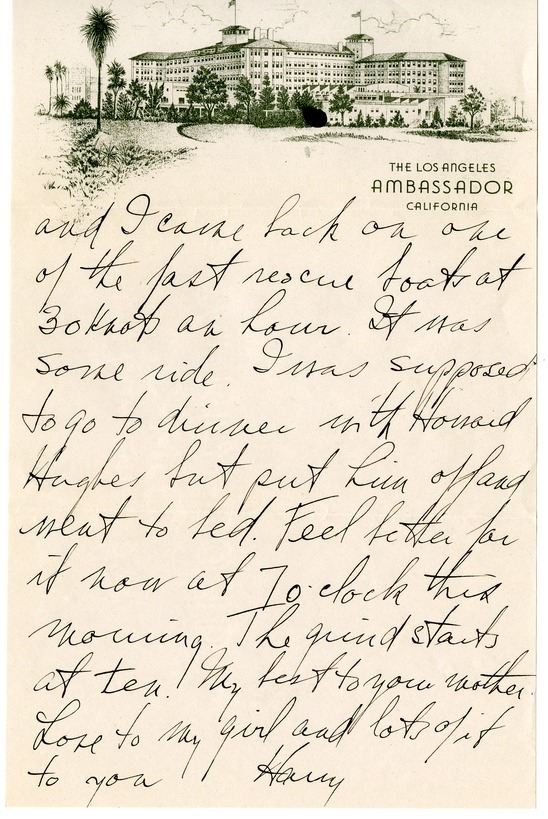 THE LOS ANGELES
AMBASSADOR
CALIFORNIA
and I came back on one
of the fast rescue boats at
30 knots an hour. It was
some ride. I was supposed
to go to dinner with Howard
Hughes but put him off and
went to bed. Feel better for
it now at 7 o'clock this
morning. The grind starts
at ten. My best to your mother.
Love to my girl and lots of it
to you Harry